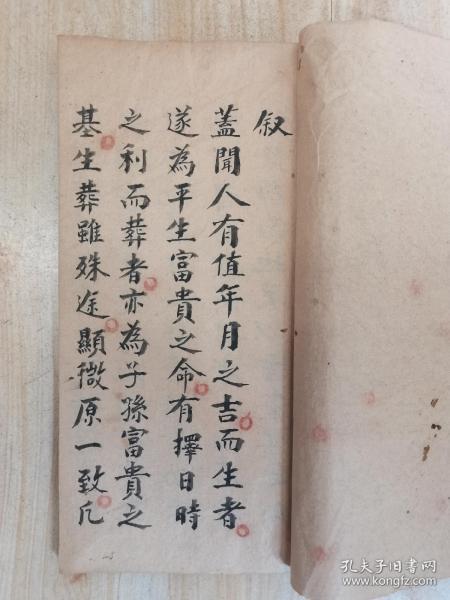 叙
蓋聞人有值年月之吉而生者
遂為平生富貴之命有擇日時
之利而葬者亦為子孫富貴之
基生葬雖殊途顯微原一致凡
孔夫子旧书网
www.kongfz.com